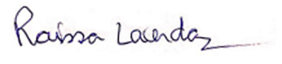 Raissa Lacerda